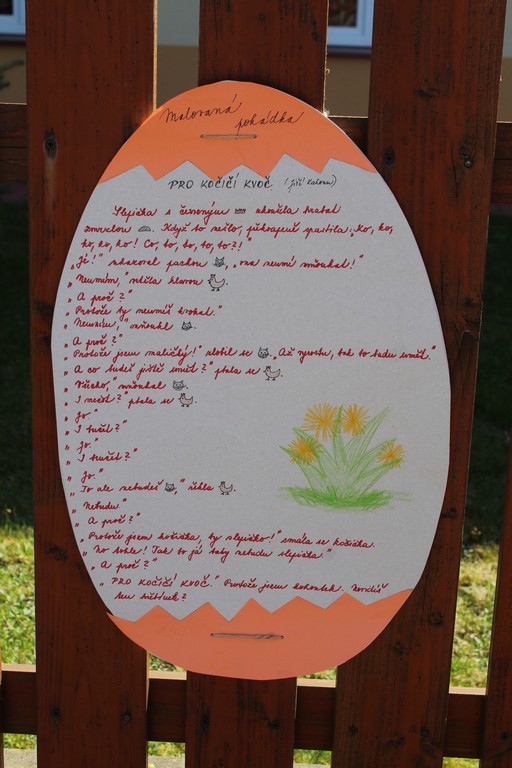 Malovaná
pohádka
PRO KOČIČÍ KVOČ (Jiří Kahoun)
Slepička s červeným zkoušela hrabat
Když to nešlo, překvapeně spustila: „Ko, ko,
ko, ko, ko! Co, to, to, to, to?!"
„Jé!" pachou , „ona neumí mňoukat!"
„Neumím," hlavou .
„A proč?"
„Protože ty neumíš kvokat."
„Neumím," mňouklo .
„A proč?"
„Protože jsem maličký!" zlobil se . „Až vyrostu, tak to budu umět."
„A co budeš ještě umět?" ptala se .
„Všecko," mňoukal .
„I nosit?" ptala se .
„Jo."
„I
„Jo."
„I
„Jo."
„To ale nebudeš ," řekla .
„Nebudu"
„A proč?"
„Protože jsem kočička, ty slepičko!" smála se kočička.
„No tohle! Tak to já taky nebudu slepička."
„A proč?"
„PRO KOČIČÍ KVOČ." Protože jsem kohoutek. Nevidíš
ten hřebínek?